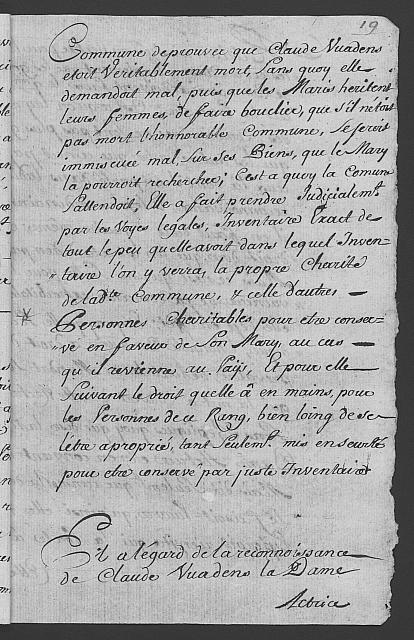 19
Commune de prouver que Claude Vuadens
étoit Veritablement mort, Sans quoy elle
demandoit mal, puis que les Maris heritent
leurs femmes, de faire bouclier, que s'il n'étoit
pas mort l'honnorable Commune, Se seroit
immiscuée mal, Sur ses Biens, que le Mary
la pourroit rechercher; C'est a quoy la Comune
S'attendoit, Elle a fait prendre Judicialemt
par les Voyes legales, Inventaire Exact de
tout le peu qu'elle avoit dans lequel Inven-
„ taire l'on y verra, la propre Charité
de ladte Commune, & celle d'autres
Personnes Charitables pour etre conser-
„ vé en faveur de Son Mary, au cas
qu'il revienne au Païs, Et pour elle
Suivant le droit qu'elle â en mains, pour
les Personnes de ce Rang, bien loing de se
l'être aproprié, tant Seulemt mis en seurté
pour etre conservé par juste Inventaire
Et a légard de la reconnoissance
de Claude Vuadens la Dame
Actrice